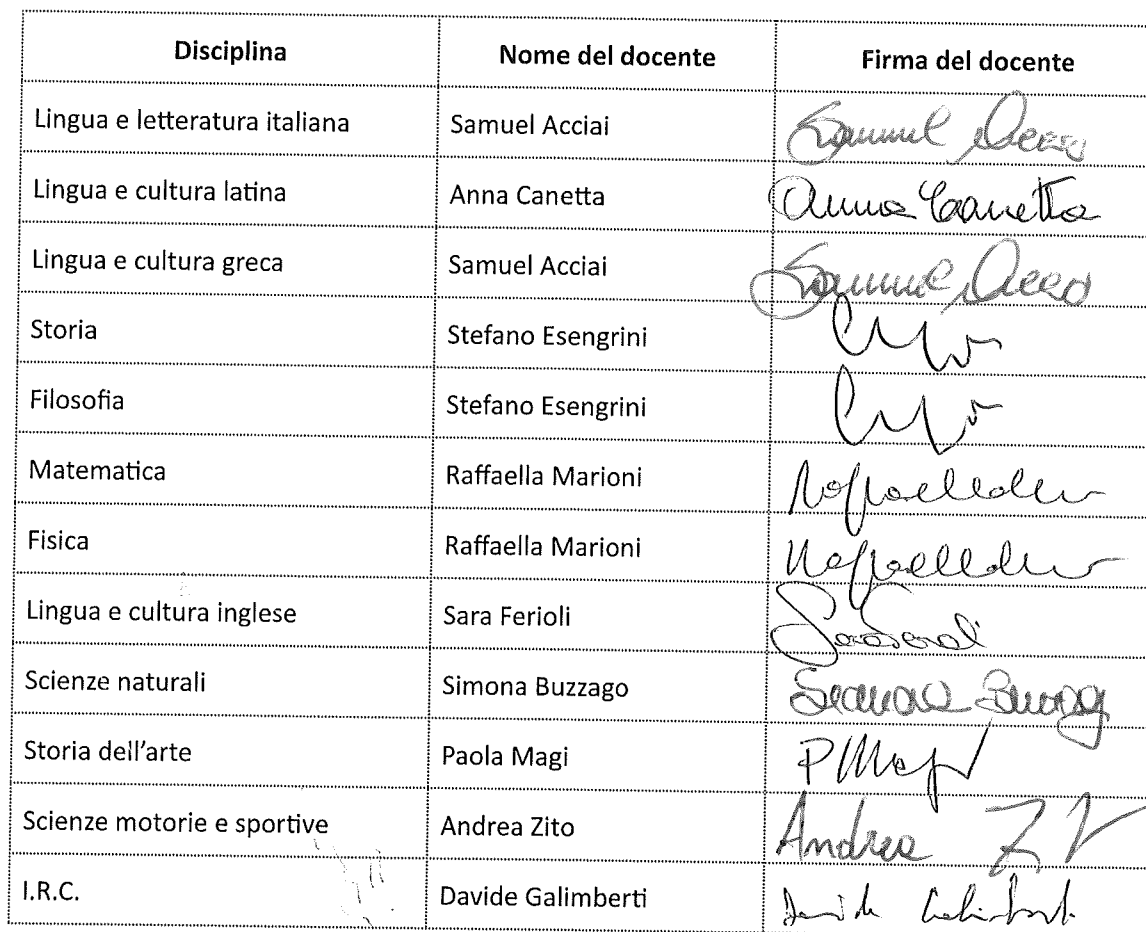 Disciplina Nome del docente Firma del docente
Lingua e letteratura italiana Samuel Acciai Samuel
Lingua e cultura latina Anna Canetta Anna Canetta
Lingua e cultura greca Samuel Acciai Samuel
Storia Stefano Esengrini
Filosofia Stefano Esengrini
Matematica Raffaella Marioni
Fisica Raffaella Marioni
Lingua e cultura inglese Sara Ferioli
Scienze naturali Simona Buzzago
Storia dell'arte Paola Magi P Magi
Scienze motorie e sportive Andrea Zito Andrea
I.R.C. Davide Galimberti Davide Galimberti